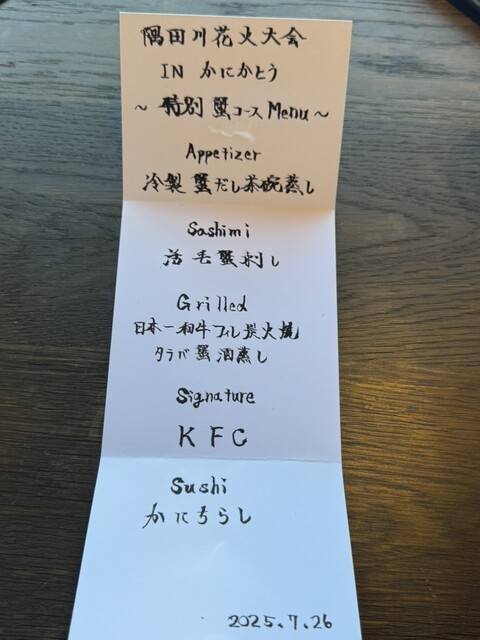 隅田川花火大会
IN かにかとう
～ 特別 蟹コース Menu ～
Appetizer
冷製 蟹だし茶碗蒸し
Sashimi
活毛蟹刺し
Grilled
日本一和牛フィレ炭火焼
タラバ蟹酒蒸し
Signature
KFC
Sushi
かにちらし
2025.7.26